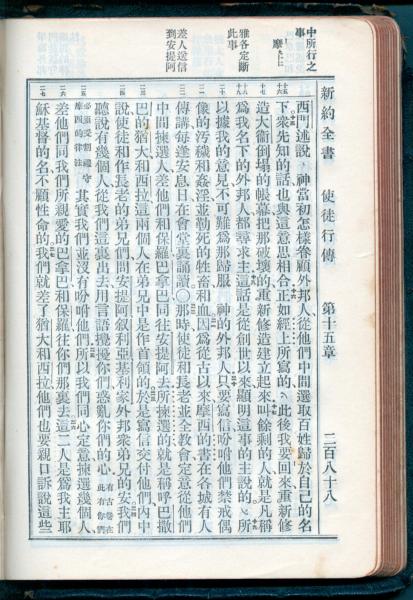 新約全書 使徒行傳 第十五章 二百八十八
中所行之
事
摩
雅各定斷
此事
差人送信
到安提阿
西門述說 神當初怎樣眷顧外邦人、從他們中間選取百姓歸於自己的名
下、衆先知的話也與這意思相合、正如經上所寫的、此後我要回來重新修
造大衞倒塌的帳幕、把那破壞的、重新修造建立起來、叫餘剩的人、就是凡稱
爲我名下的外邦人、都尋求主、這話是從創世以來、顯明這事的主說的、所
以據我的意見、不可難爲那歸服 神的外邦人、只要寫信吩咐他們禁戒偶
像的汚穢和姦淫、並勒死的牲畜和血、因爲從古以來、摩西的書在各城有人
傳講、每逢安息日、在會堂裏誦讀〇那時使徒和長老並全教會定意從他們
中間揀選人、差他們和保羅巴拿巴同往安提阿去、所揀選的就是稱呼巴撒
巴的猶大和西拉、這兩個人在弟兄中是作首領的、於是寫信交付他們、內中
說、使徒和作長老的弟兄們、問安提阿叙利亞基利家外邦衆弟兄的安、我們
聽說有幾個人、從我們這裏出去、用言語攪擾你們、惑亂你們的心、有古卷在此有你們
必須受割禮守摩西的律法 其實我們並沒有吩咐他們、所以我們同心定意、揀選幾個人、
差他們同我們所親愛的巴拿巴和保羅、往你們那裏去、這二人是爲我主耶
穌基督的名不顧性命的、我們就差了猶大和西拉、他們也要親口訴說這些